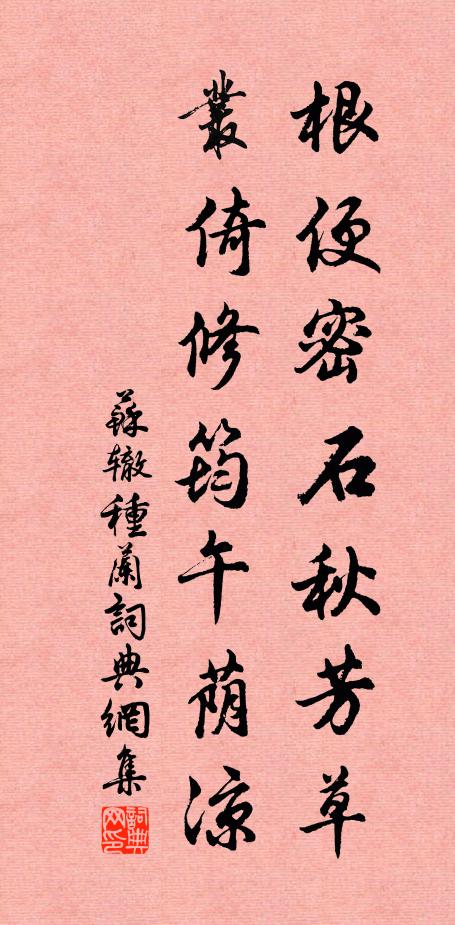 根便密石秋芳草
叢倚修筠午荫凉
蘇辙種蘭詞典網集
詞典网印